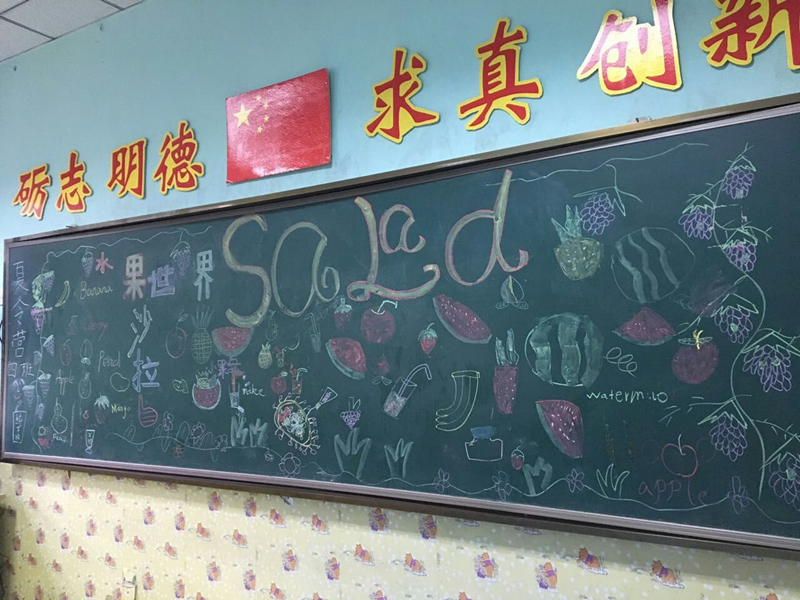 砺志 明德 求真 创新
夏令营四班
水果世界
SaLad
沙拉
Banana
Cherry
Apple
Pear
Mango
watermilo
apple